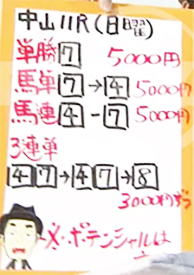 中山11R(日曜)
単勝7 5000円
馬単7→4 5000円
馬連4-7 5000円
3連単
47→47→8
3000円ずつ
メ・ポテンシャルは